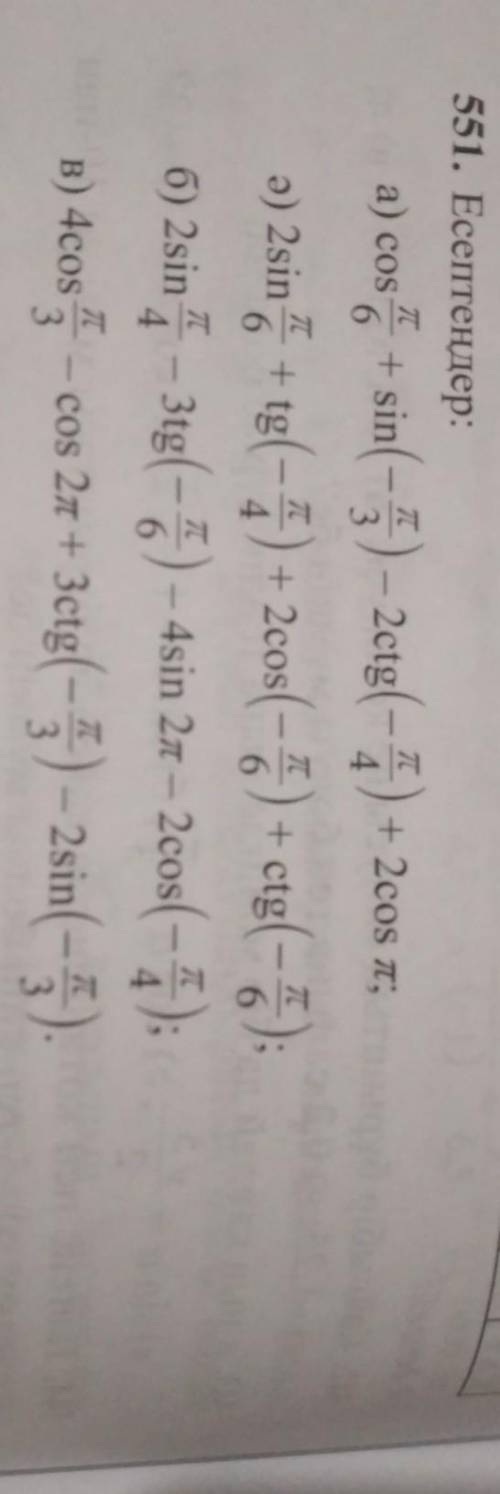 551. Есептеңдер:
а) cos π/6 + sin(−π/3) − 2ctg(−π/4) + 2cos π;
ә) 2sin π/6 + tg(−π/4) + 2cos(−π/6) + ctg(−π/6);
б) 2sin π/4 − 3tg(−π/6) − 4sin 2π − 2cos(−π/4);
в) 4cos π/3 − cos 2π + 3ctg(−π/3) − 2sin(−π/3).